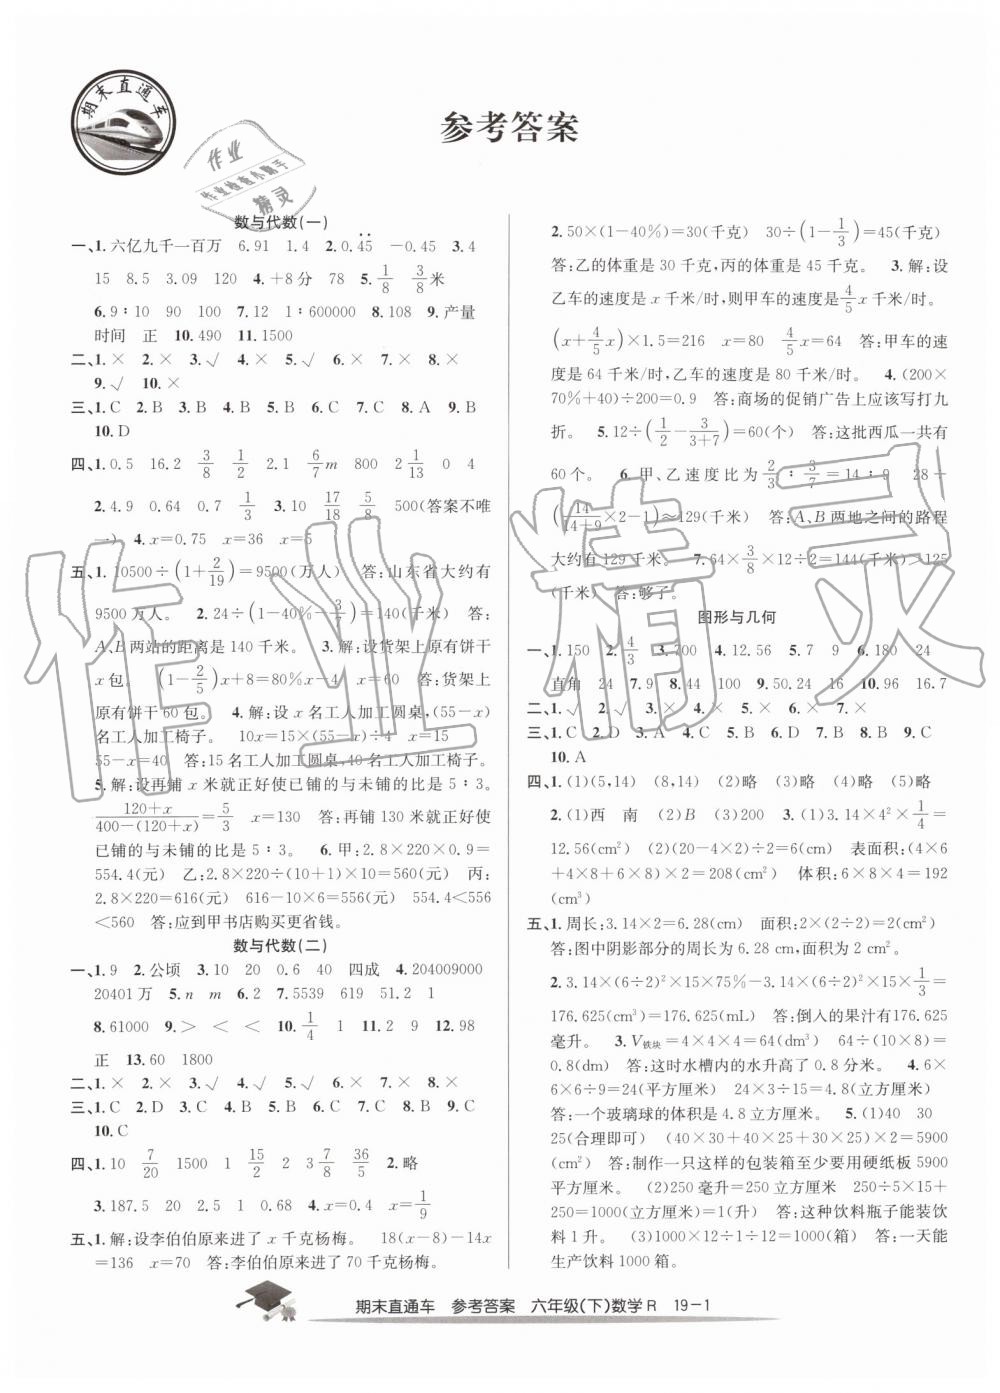 期末直通车
参考答案
作业
作业检查小助手
精灵
数与代数(一)
一、1.六亿九千一百万 6.91 1.4 2.0.4̇5̇ -0.45 3.4
15 8.5 3.09 120 4.+8分 78 5.1/8 3/8米
6.9∶10 90 100 7.12 1∶600000 8.108 9.产量
时间 正 10.490 11.1500
二、1.× 2.× 3.√ 4.× 5.√ 6.× 7.× 8.×
9.√ 10.×
三、1.C 2.B 3.B 4.B 5.B 6.C 7.C 8.A 9.B
10.D
四、1.0.5 16.2 3/8 1/2 2.1 6/7m 800 2 1/13 0 4
2.4.9 0.64 0.7 1/3 3.10 17/18 5/8 500(答案不唯
一) 4.x=0.75 x=36 x=5
五、1.10500÷(1+2/19)=9500(万人) 答:山东省大约有
9500万人。 2.24÷(1-40%-3/7)=140(千米) 答:
A、B两站的距离是140千米。 3.解:设货架上原有饼干
x包。 (1-2/5)x+8=80%x-4 x=60 答:货架上
原有饼干60包。 4.解:设x名工人加工圆桌,(55-x)
名工人加工椅子。 10x=15×(55-x)÷4 x=15
55-x=40 答:15名工人加工圆桌,40名工人加工椅子。
5.解:设再铺x米就正好使已铺的与未铺的比是5∶3。
(120+x)/(400-(120+x))=5/3 x=130 答:再铺130米就正好使
已铺的与未铺的比是5∶3。 6.甲:2.8×220×0.9=
554.4(元) 乙:2.8×220÷(10+1)×10=560(元) 丙:
2.8×220=616(元) 616-10×6=556(元) 554.4<556
<560 答:应到甲书店购买更省钱。
数与代数(二)
一、1.9 2.公顷 3.10 20 0.6 40 四成 4.204009000
20401万 5.n m 6.2 7.5539 619 51.2 1
8.61000 9.> < < < 10.1/4 1 11.2 9 12.98
正 13.60 1800
二、1.× 2.× 3.× 4.√ 5.√ 6.√ 7.× 8.×
三、1.C 2.D 3.C 4.B 5.B 6.C 7.B 8.B 9.C
10.C
四、1.10 7/20 1500 1 15/2 2 3 7/8 36/5 2.略
3.187.5 20 2.5 1 4.x=0.4 x=1/9
五、1.解:设李伯伯原来进了x千克杨梅。 18(x-8)-14x
=136 x=70 答:李伯伯原来进了70千克杨梅。
2.50×(1-40%)=30(千克) 30÷(1-1/3)=45(千克)
答:乙的体重是30千克,丙的体重是45千克。 3.解:设
乙车的速度是x千米/时,则甲车的速度是4/5x千米/时。
(x+4/5x)×1.5=216 x=80 4/5x=64 答:甲车的速
度是64千米/时,乙车的速度是80千米/时。 4.(200×
70%+40)÷200=0.9 答:商场的促销广告上应该写打九
折。 5.12÷(1/2-3/(3+7))=60(个) 答:这批西瓜一共有
60个。 6.甲、乙速度比为2/3∶3/7=14∶9 28÷
(14/(14+9)×2-1)≈129(千米) 答:A、B两地之间的路程
大约有129千米。 7.64×3/8×12÷2=144(千米)>125
(千米) 答:够了。
图形与几何
一、1.150 2.4/3 3.700 4.12.56 5.7 9 6.180 24
直角 24 7.9 8.44 100 9.50.24 16 10.96 16.7
二、1.√ 2.√ 3.× 4.× 5.× 6.× 7.×
三、1.C 2.D 3.A 4.C 5.C 6.A 7.D 8.B 9.C
10.A
四、1.(1)(5,14) (8,14) (2)略 (3)略 (4)略 (5)略
2.(1)西 南 (2)B (3)200 3.(1)3.14×4²×1/4=
12.56(cm²) (2)(20-4×2)÷2=6(cm) 表面积:(4×6
+4×8+6×8)×2=208(cm²) 体积:6×8×4=192
(cm³)
五、1.周长:3.14×2=6.28(cm) 面积:2×(2÷2)=2(cm²)
答:图中阴影部分的周长为6.28 cm,面积为2 cm²。
2.3.14×(6÷2)²×15×75%-3.14×(6÷2)²×1.5×1/3=
176.625(cm³)=176.625(mL) 答:倒入的果汁有176.625
毫升。 3.V铁块=4×4×4=64(dm³) 64÷(10×8)=
0.8(dm) 答:这时水槽内的水升高了0.8分米。 4.6×
6×6÷9=24(平方厘米) 24×3÷15=4.8(立方厘米)
答:一个玻璃球的体积是4.8立方厘米。 5.(1)40 30
25(合理即可) (40×30+40×25+30×25)×2=5900
(cm²) 答:制作一只这样的包装箱至少要用硬纸板5900
平方厘米。 (2)250毫升=250立方厘米 250÷5×15+
250=1000(立方厘米)=1(升) 答:这种饮料瓶子能装饮
料1升。 (3)1000×12÷1÷12=1000(箱) 答:一天能
生产饮料1000箱。
作业精灵
期末直通车 参考答案 六年级(下)数学R 19-1